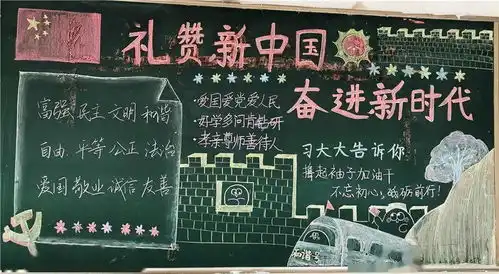 礼赞新中国
奋进新时代
富强 民主 文明 和谐
自由 平等 公正 法治
爱国 敬业 诚信 友善
·爱国爱党爱人民
·好学多问肯钻研
·孝亲尊师善待人
习大大告诉你:
撸起袖子加油干
不忘初心,砥砺前行!
和谐号